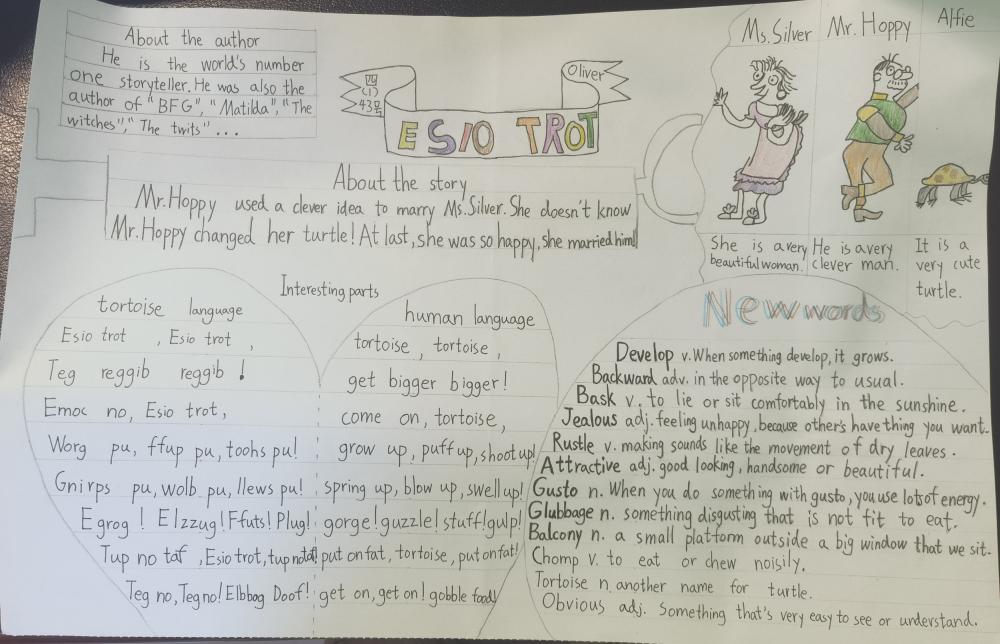 About the author
He is the world's number
one storyteller. He was also the
author of "BFG", "Matilda", "The
witches", "The twits" ...
四
(1)
43号
Oliver
ESIO TROT
Ms. Silver
Mr. Hoppy
Alfie
She is a very
beautiful woman.
He is a very
clever man.
It is a
very cute
turtle.
About the story
Mr. Hoppy used a clever idea to marry Ms. Silver. She doesn't know
Mr. Hoppy changed her turtle! At last, she was so happy, she married him!!
Interesting parts
tortoise language
Esio trot , Esio trot ,
Teg reggib reggib !
Emoc no, Esio trot,
Worg pu, ffup pu, toohs pu!
Gnirps pu, wolb pu, llews pu!
Egrog ! Elzzug! Ffuts! Plug!
Tup no taf , Esio trot, tup no taf!
Teg no, Teg no! Elbbog Doof!
human language
tortoise , tortoise ,
get bigger bigger!
come on, tortoise,
grow up, puff up, shoot up!
spring up, blow up, swell up!
gorge! guzzle! stuff! gulp!
put on fat, tortoise, put on fat!
get on, get on! gobble food!
New words
Develop v. When something develop, it grows.
Backward adv. in the opposite way to usual.
Bask v. to lie or sit comfortably in the sunshine.
Jealous adj. feeling unhappy, because others have thing you want.
Rustle v. making sounds like the movement of dry leaves.
Attractive adj. good looking, handsome or beautiful.
Gusto n. When you do something with gusto, you use lots of energy.
Glubbage n. something disgusting that is not fit to eat.
Balcony n. a small platform outside a big window that we sit.
Chomp v. to eat or chew noisily.
Tortoise n. another name for turtle.
Obvious adj. Something that's very easy to see or understand.